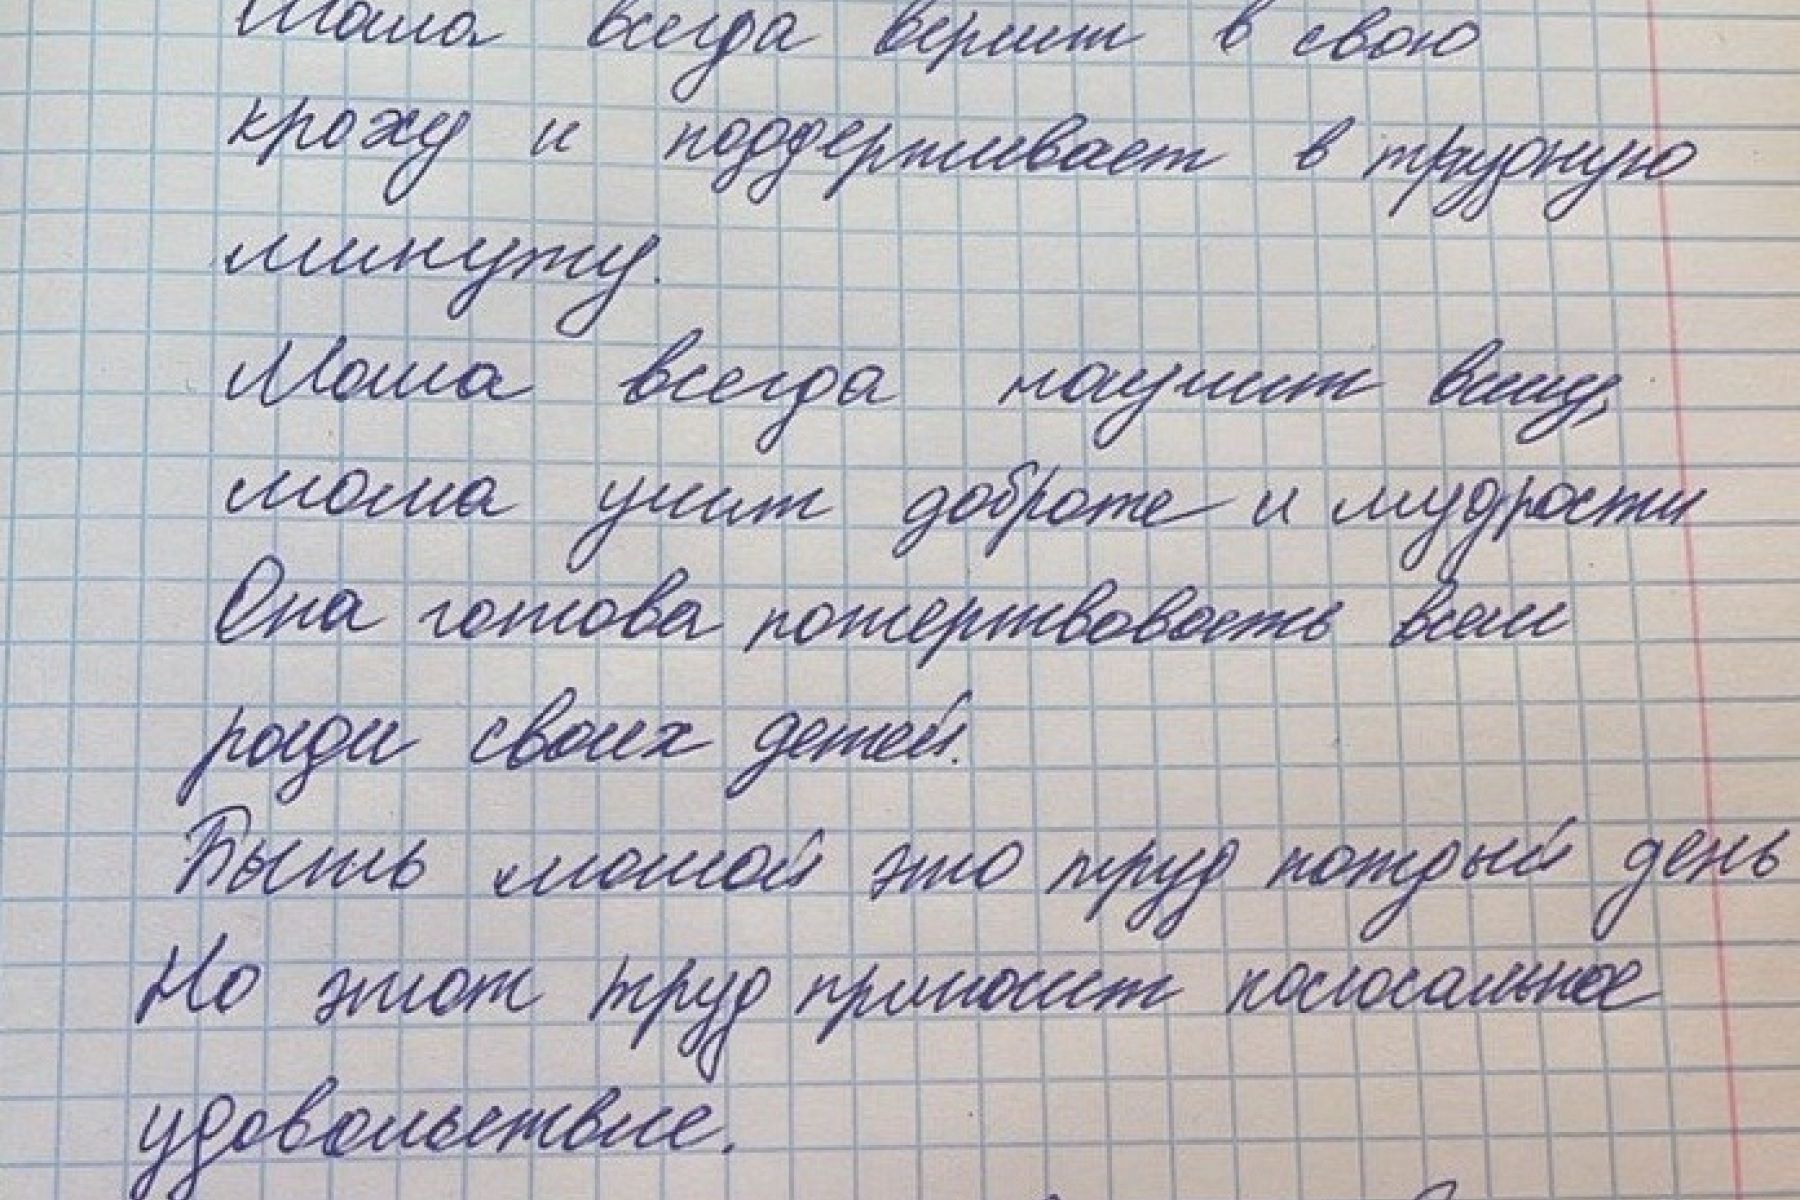 Мама всегда верит в свою
кроху и поддерживает в трудную
минуту.
Мама всегда научит всему,
мама учит доброте и мудрости
Она готова пожертвовать всем
ради своих детей.
Быть мамой это труд каждый день
Но этот труд приносит колосальное
удовольствие.